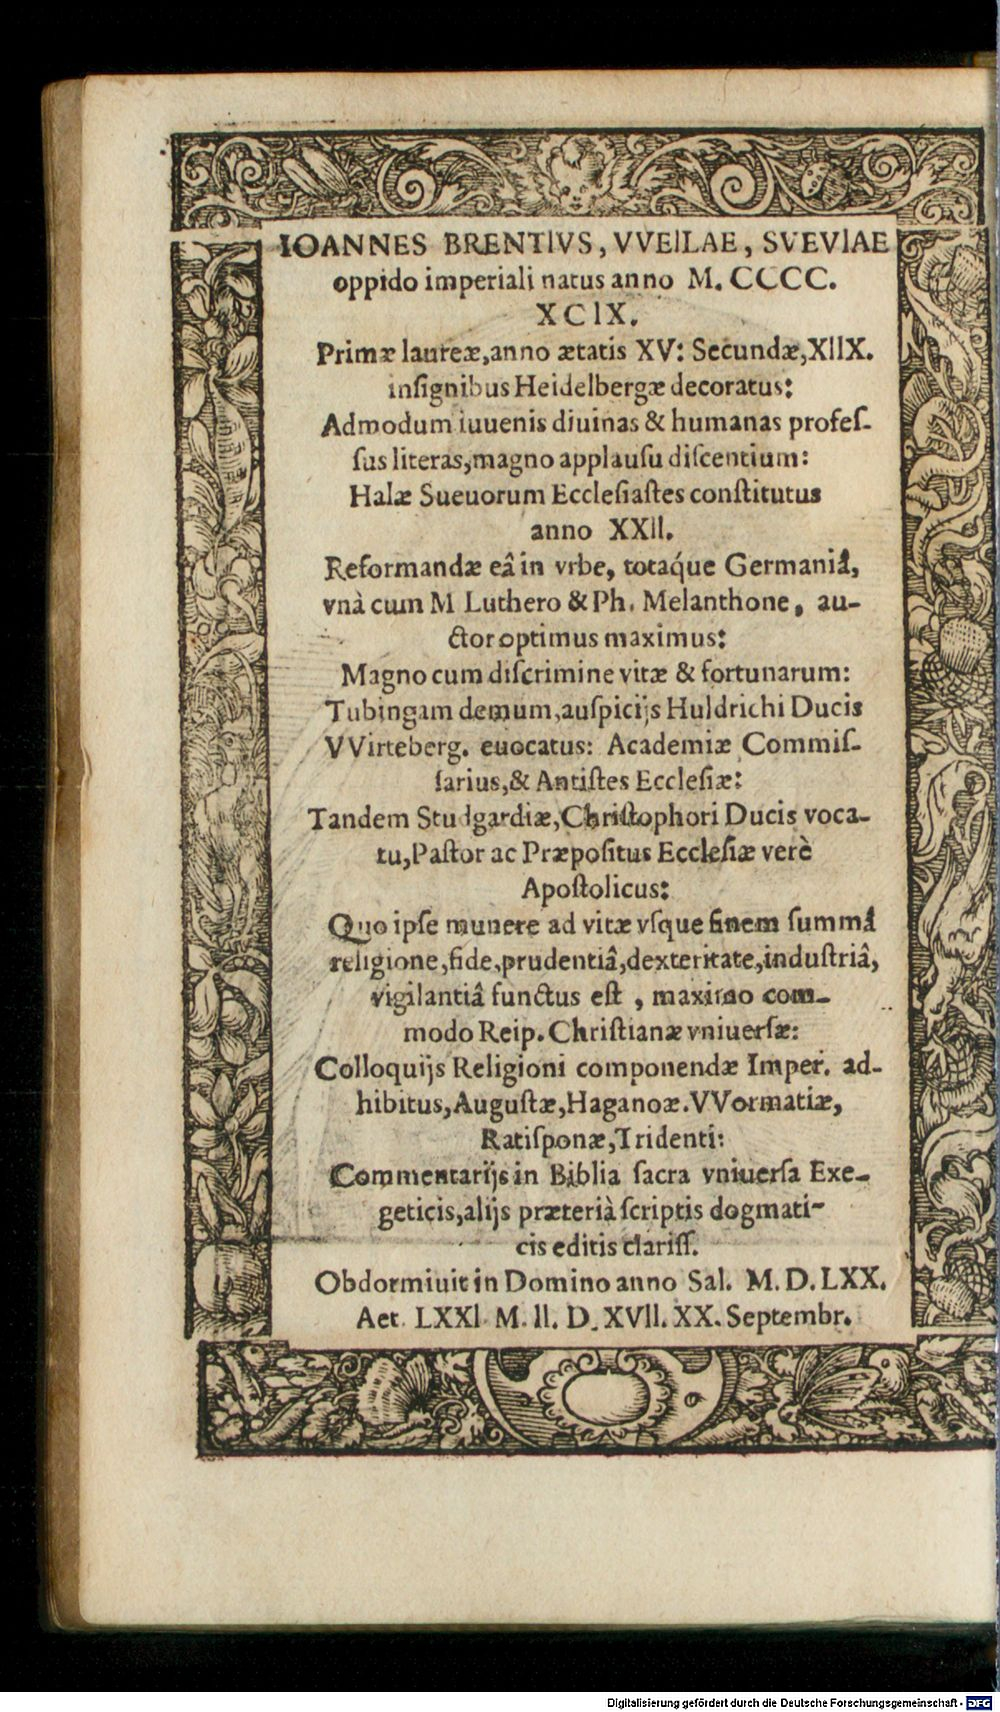 IOANNES BRENTIVS, VVEILAE, SVEVIAE
oppido imperiali natus anno M. CCCC.
XCIX.
Primæ laureæ, anno ætatis XV: Secundæ, XIIX.
inſignibus Heidelbergæ decoratus:
Admodum iuuenis diuinas & humanas profeſ-
ſus literas, magno applauſu diſcentium:
Halæ Sueuorum Eccleſiaſtes conſtitutus
anno XXII.
Reformandæ eâ in vrbe, totáque Germaniâ,
vnà cum M Luthero & Ph. Melanthone, au-
ctor optimus maximus:
Magno cum diſcrimine vitæ & fortunarum:
Tubingam demum, auſpicijs Huldrichi Ducis
VVirteberg. euocatus: Academiæ Commiſ-
ſarius, & Antiſtes Eccleſiæ:
Tandem Studgardiæ, Chriſtophori Ducis voca-
tu, Paſtor ac Præpoſitus Eccleſiæ verè
Apoſtolicus:
Quo ipſe munere ad vitæ vſque finem ſummâ
religione, fide, prudentiâ, dexteritate, induſtriâ,
vigilantiâ functus eſt, maximo com-
modo Reip. Chriſtianæ vniuerſæ:
Colloquijs Religioni componendæ Imper. ad-
hibitus, Auguſtæ, Haganoæ. VVormatiæ,
Ratiſponæ, Tridenti:
Commentarijs in Biblia ſacra vniuerſa Exe-
geticis, alijs præterià ſcriptis dogmati-
cis editis clariſſ.
Obdormiuit in Domino anno Sal. M. D. LXX.
Aet. LXXI. M. II. D. XVII. XX. Septembr.
Digitalisierung gefördert durch die Deutsche Forschungsgemeinschaft - DFG